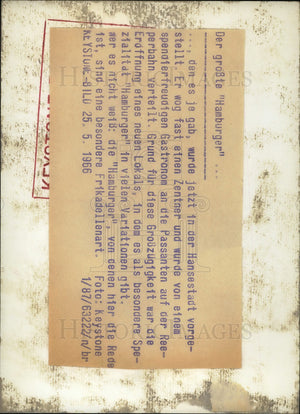 Der größte "Hamburger" ...
..., den es je gab, wurde jetzt in der Hansestadt vorge-
stellt. Er wog fast einen Zentner und wurde von einem
spendierfreudigen Gastronom an die Passanten auf der Ree-
perbahn verteilt. Grund für diese Großzügigkeit war die
Eröffnung eines neuen Lokals, in dem es als besondere Spe-
zialität "Hamburger" in vielen Variationen gibt.
Wer es nicht weiß: die "Hamburger", von denen hier die Rede
ist, sind eine besondere Frikadellenart. Foto: Keystone
KEYSTONE-BILD 25. 5. 1966 1/87/63222/n/br
KEYSTONE
HISTORIC IMAGES